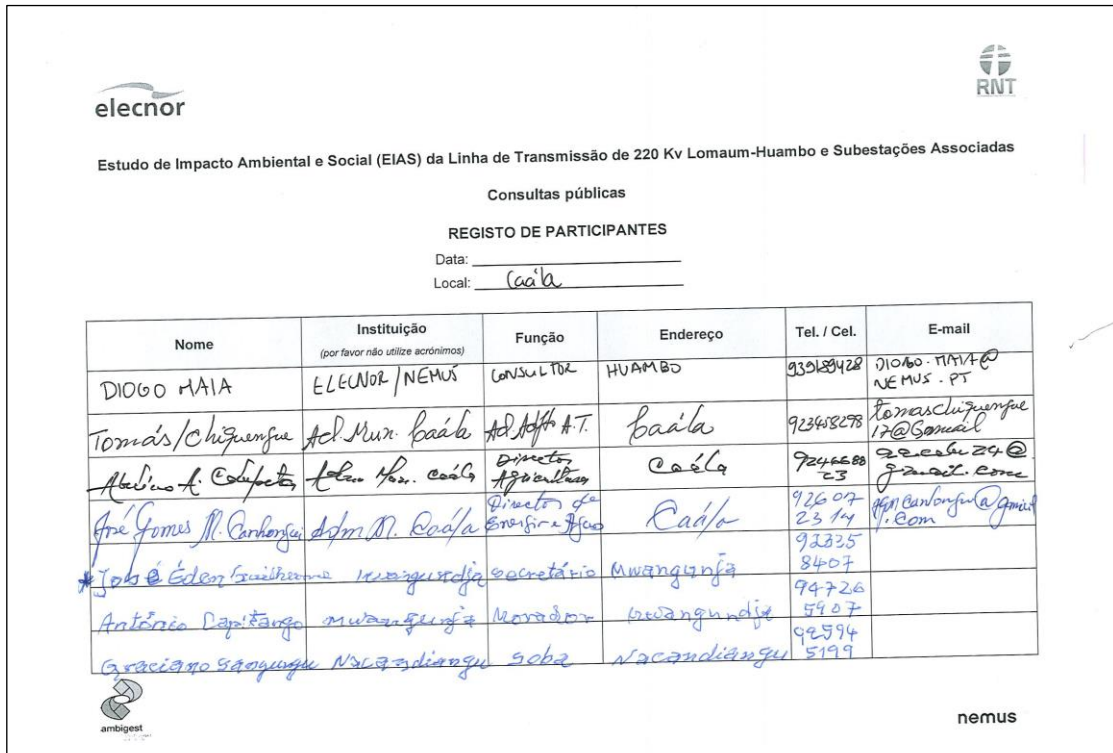 elecnor
RNT
Estudo de Impacto Ambiental e Social (EIAS) da Linha de Transmissão de 220 Kv Lomaum-Huambo e Subestações Associadas
Consultas públicas
REGISTO DE PARTICIPANTES
Data:
Local: Caála
Nome Instituição (por favor não utilize acrónimos) Função Endereço Tel. / Cel. E-mail
DIOGO MAIA ELECNOR/NEMUS CONSULTOR HUAMBO 939189428 DIOGO.MAIA@NEMUS.PT
Tomás/Chiquengue Ad. Mun. Caála Ad. A.T. Caála 923458298 tomaschiquengue17@Gmail
A. Mun. Caála Director Agricultura Caála 924668823 @gmail.com
José Gomes M. Adm M. Caála Director de Energia e Água Caála 926072314 .com
José Éden Guilherme secretário Mwangunja 923358407
António Capitango Mwangunja Morador 947265907
Graciano Nacandiangu Soba Nacandiangu 925945199
ambigest
nemus